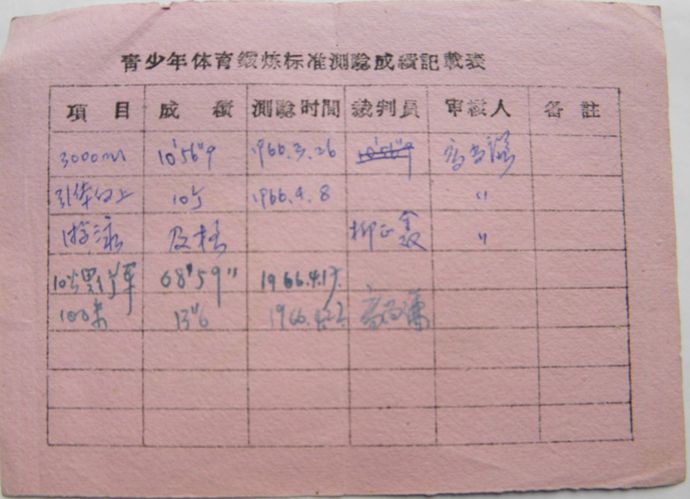 青少年体育鍛炼标准測驗成績記載表
項目 成績 測驗时間 裁判员 审核人 备註
3000m 10'56"9 1966.3.26 10'56"9
引体向上 10 1966.4.8 〃
游泳 及格 柳正 〃
68'59" 1966.4.17
100米 13"6 1966.4.22